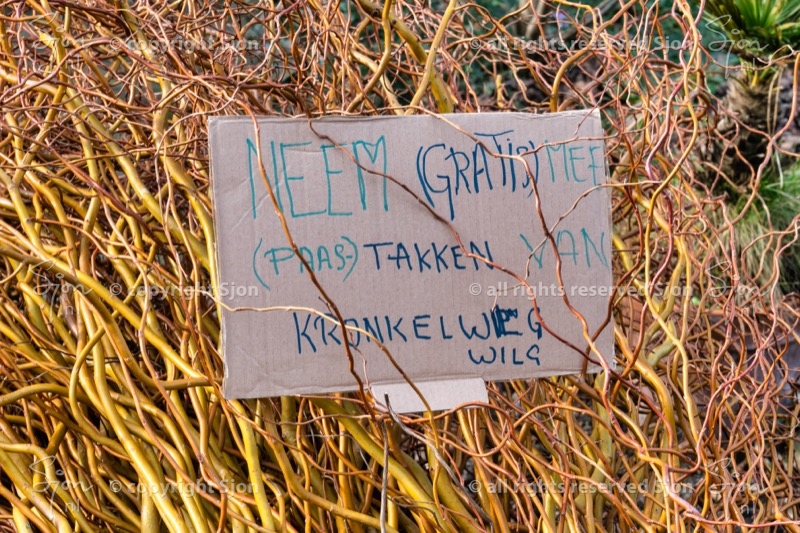 © copyright Sjon © all rights reserved Sjon
NEEM (GRATIS) MEE
(PAAS-) TAKKEN VAN
© copyright Sjon © all rights reserved Sjon
KRONKELWEG
WILG
© copyright Sjon © all rights reserved Sjon